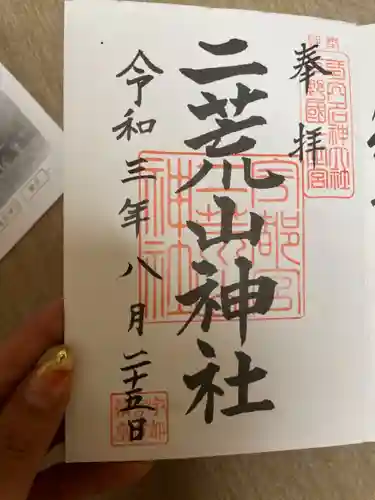 奉拝
二荒山神社
令和三年八月二十五日
宇都宮
二荒山
神社